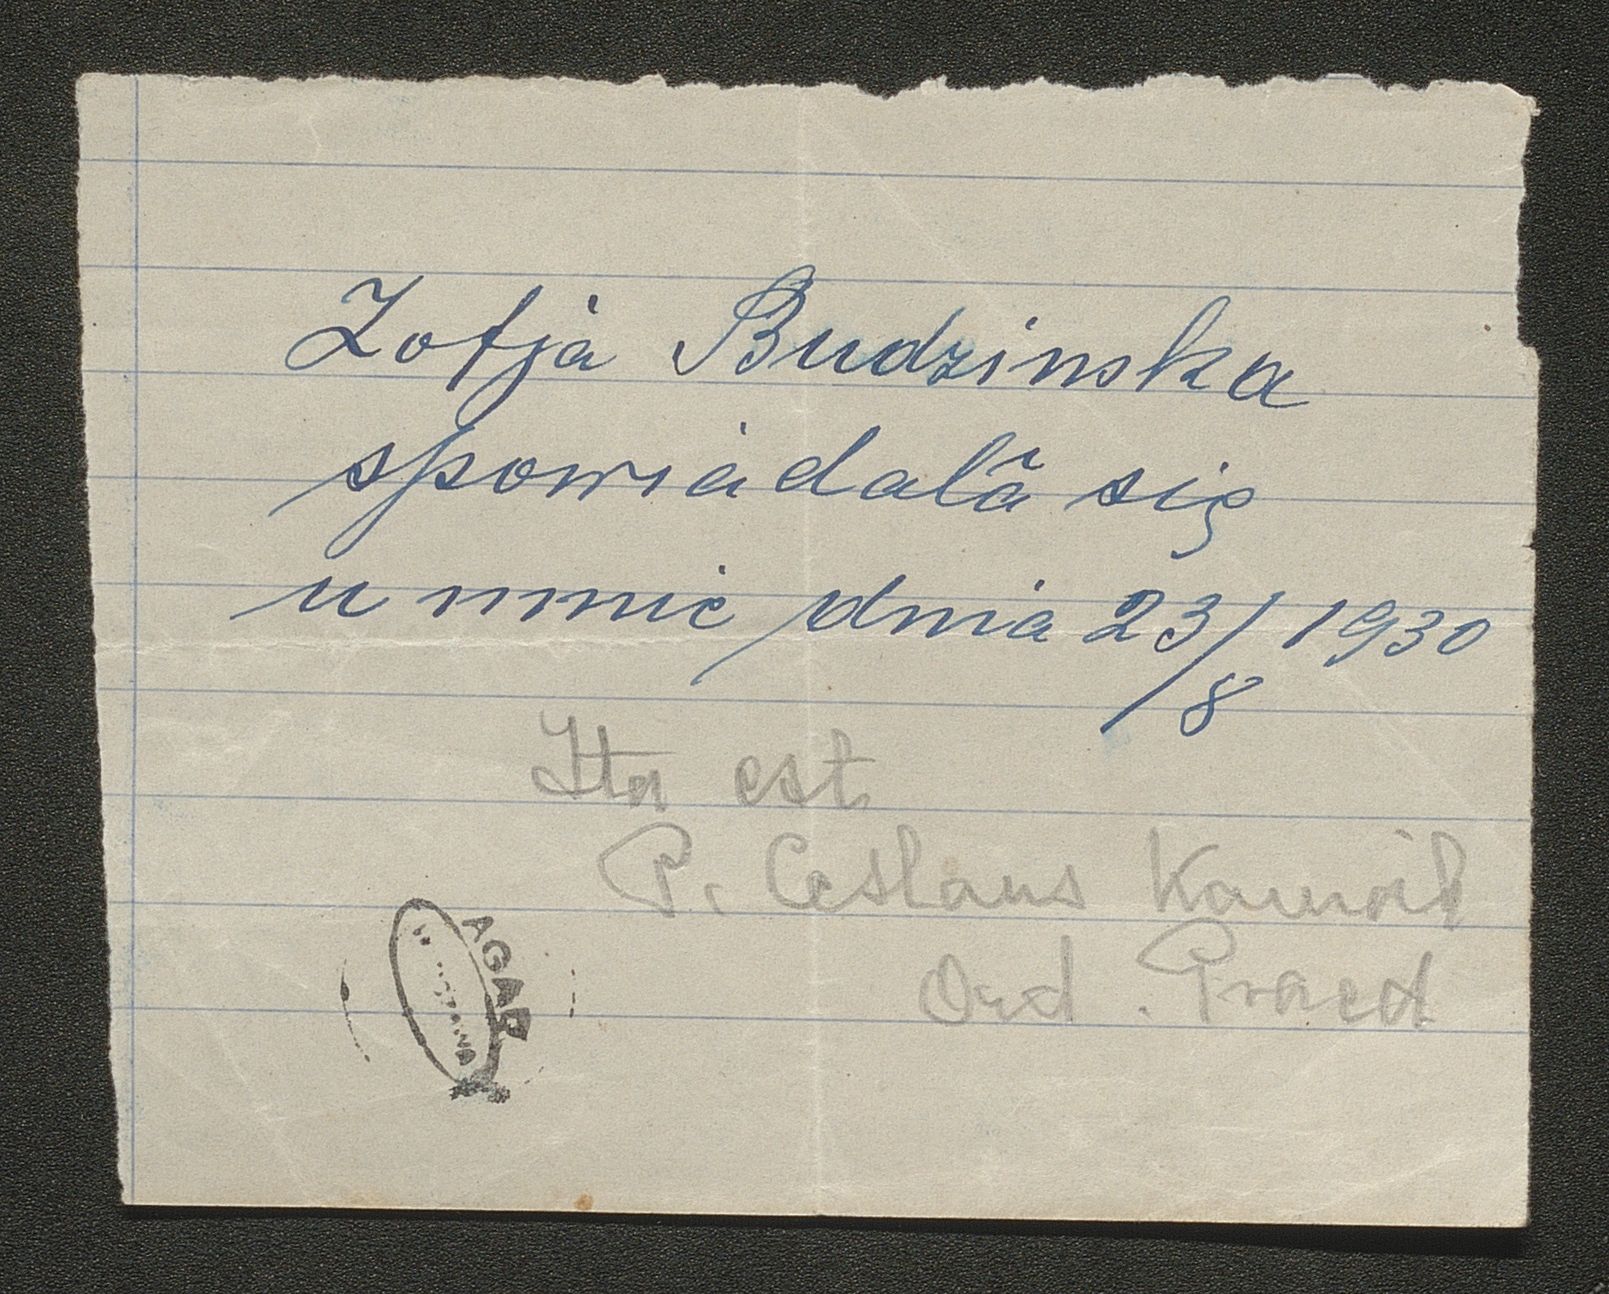 Zofja Budzinska
spowiadała się
u mnie dnia 23/8 1930
Ita est
P. Ceslaus
Ord. Praed
AGAD